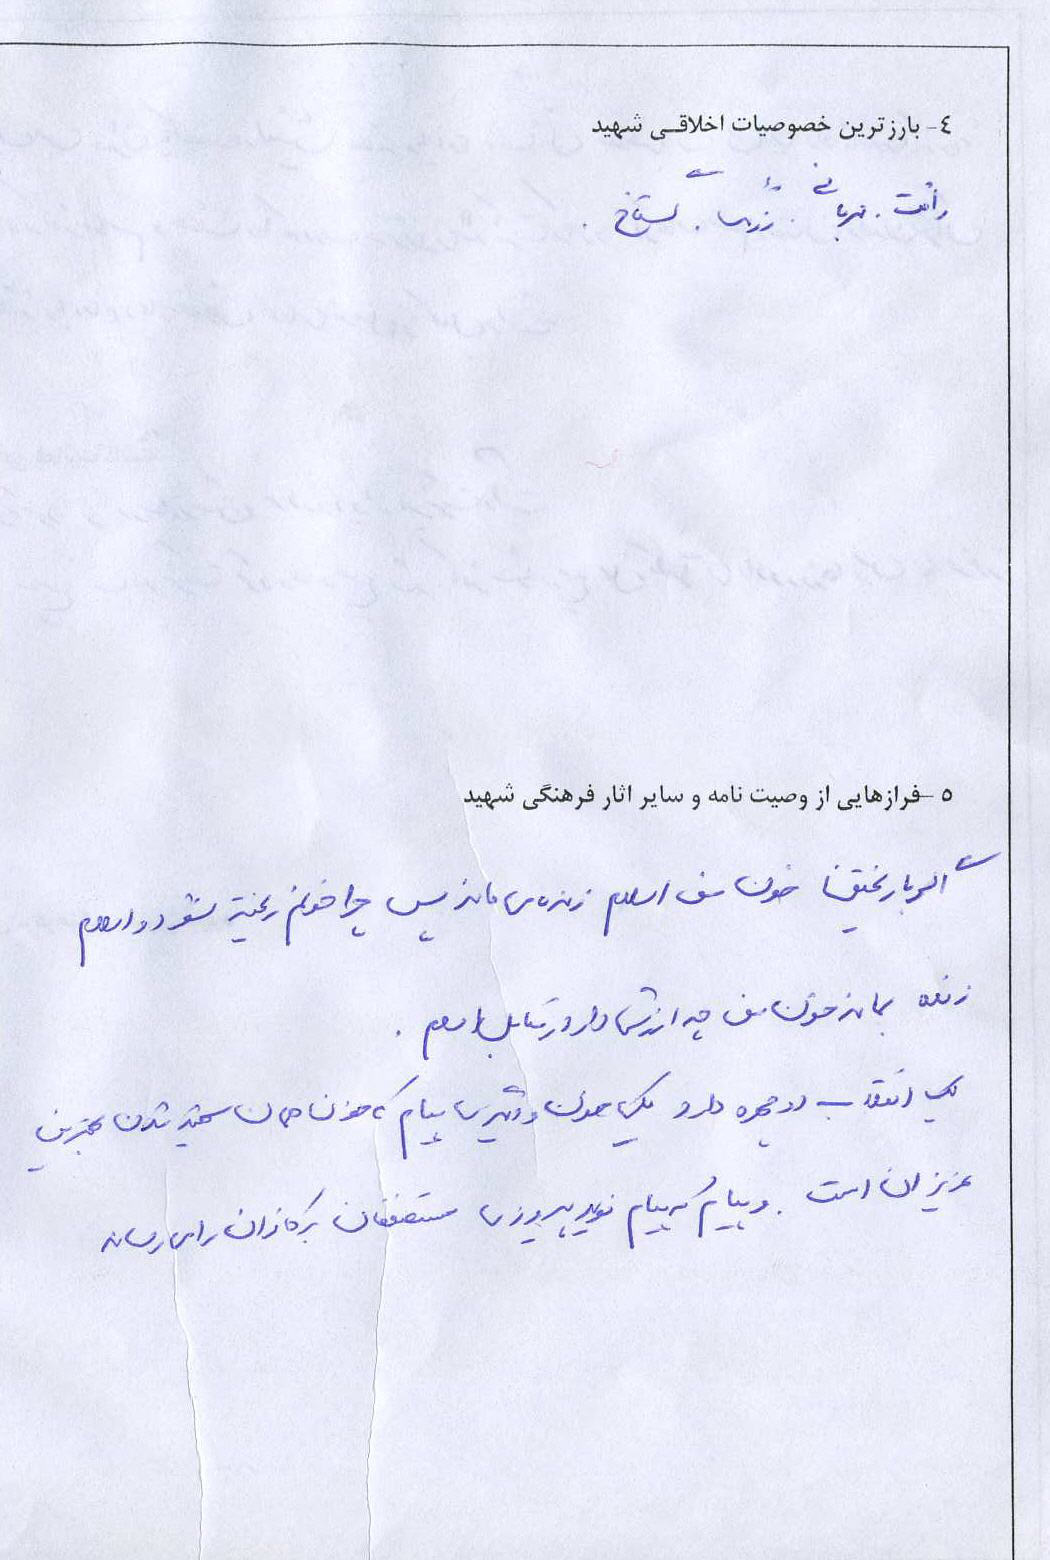 ٤- بارزترین خصوصیات اخلاقی شهید
رأفت . مهربانی .
٥ -فرازهایی از وصیت نامه و سایر اثار فرهنگی شهید
اگر با ریختن خون من اسلام زنده می ماند پس چرا خونم ریخته نشود و اسلام
زنده بماند خون من چه ارزشی دارد در مقابل اسلام .
یک انقلاب دو چهره دارد یکی خون و دیگری پیام که خون همان شدن بهترین
عزیزان است . و پیام که پیام نوید پیروزی مستضعفان بر کافران را می رساند